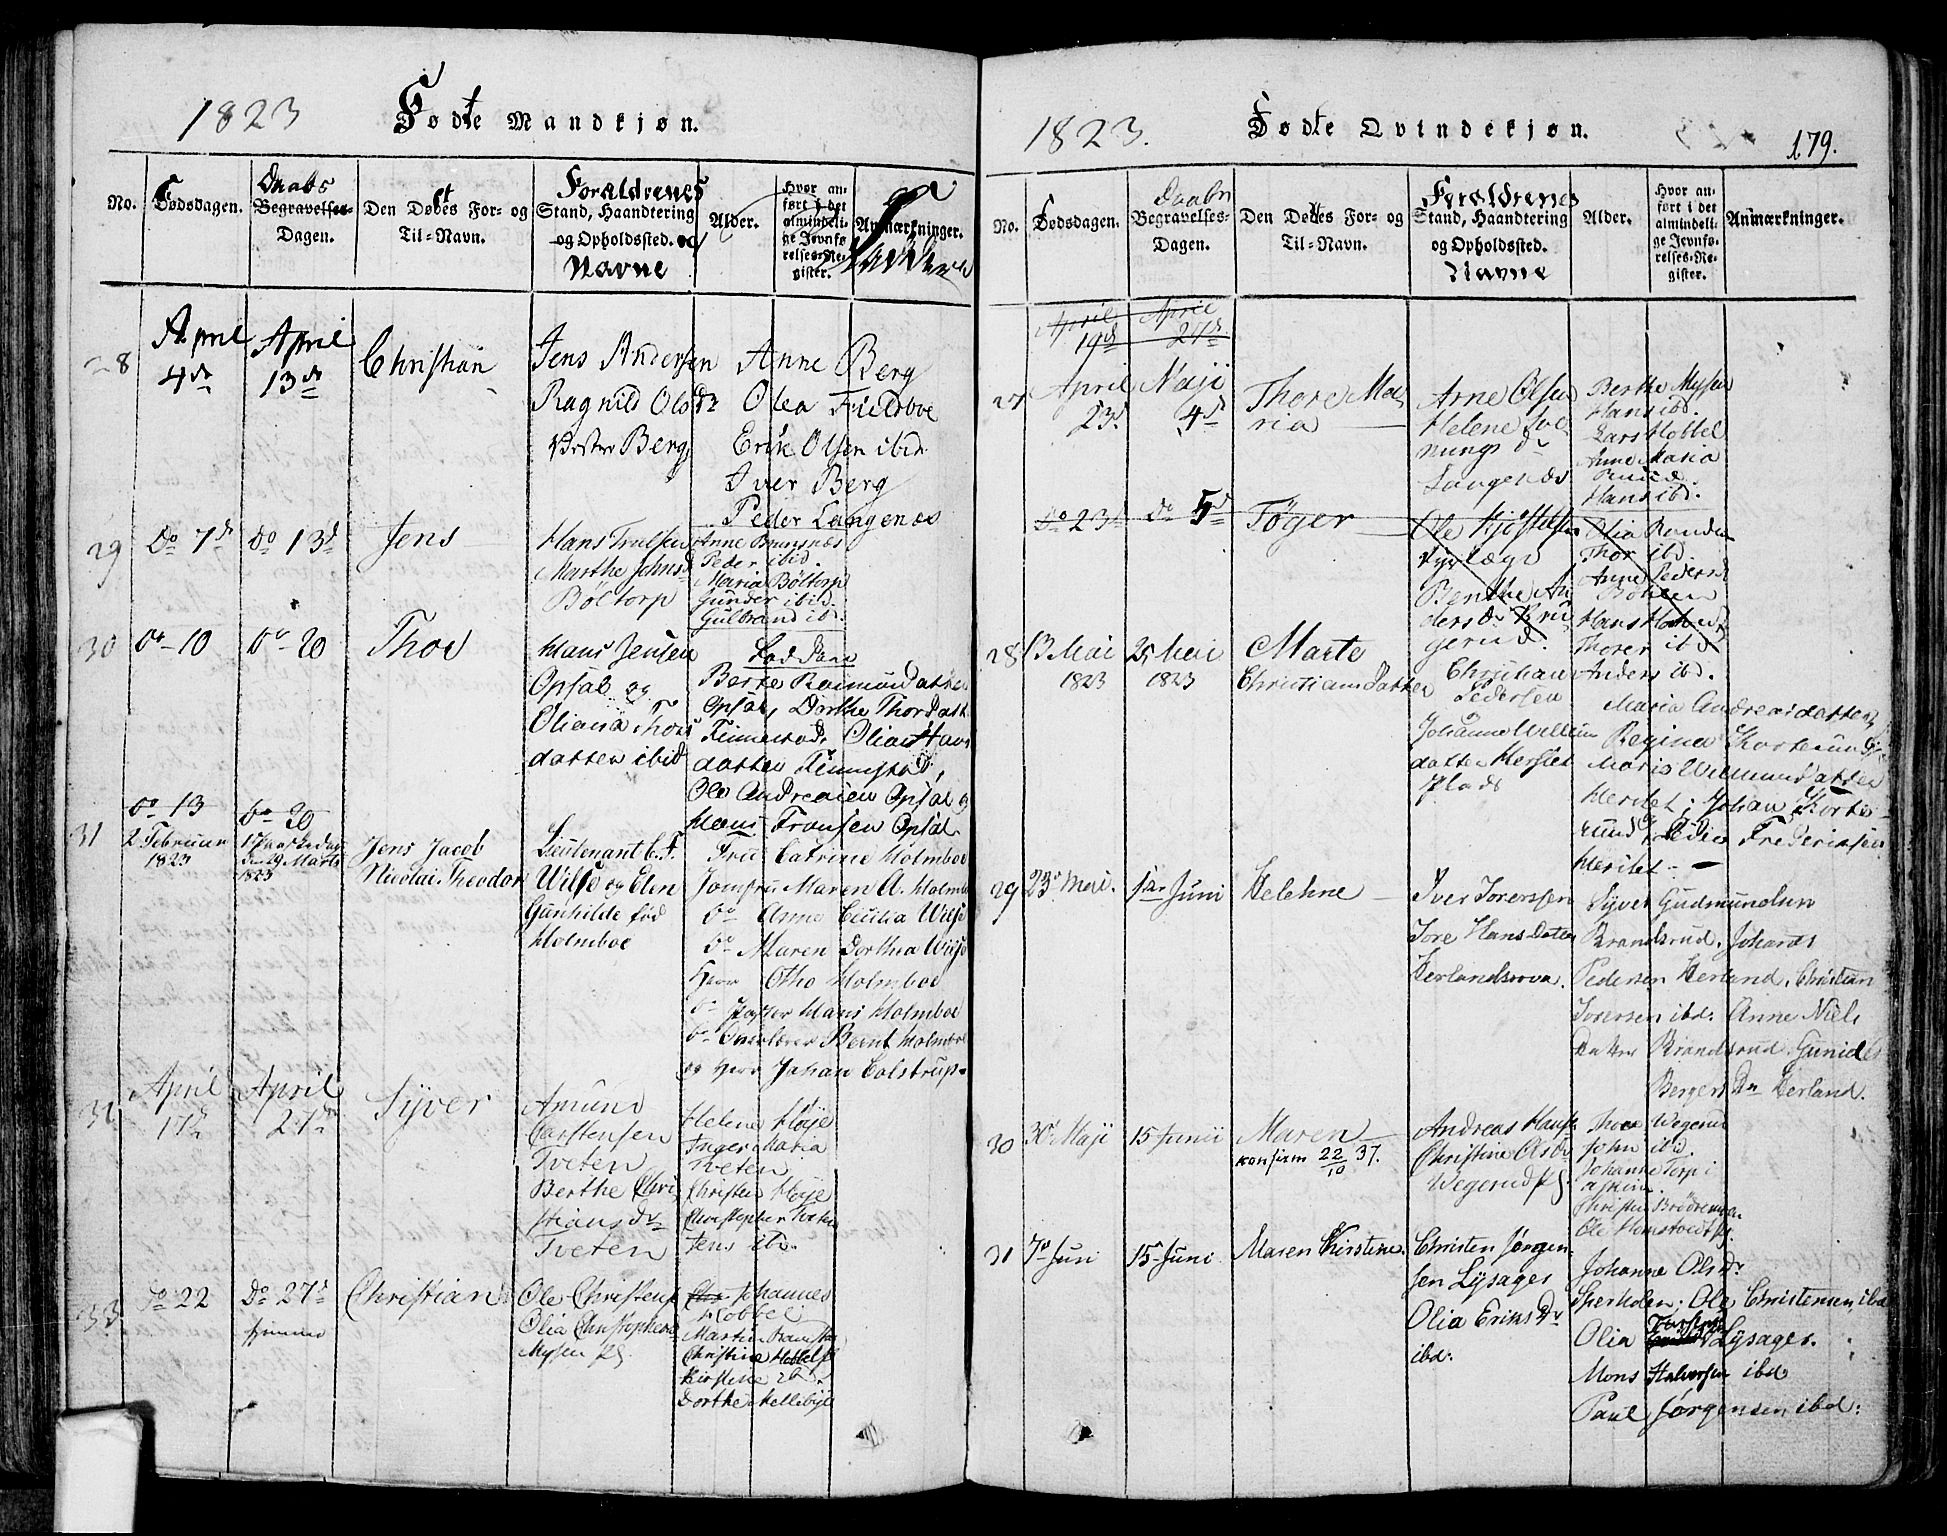 1823
Fødte Mandkjøn.
No.
Fødsdagen.
Daabs
Begravelses-
Dagen.
Den Døbtes For- og
Til-Navn.
Forældrenes
Stand, Haandtering
og Opholdssted. og
Navne
Alder.
Hvor an-
ført i det
almindeli-
ge Jevnfø
relses-Re-
gister.
Anmærkninger.
28
April
4de
April
13de
Christian
Jens Andersen
Ragnild Olsdr
Vestre Berg
Anne Berg
Olea Fieldbye
Erik Olsen ibid
Iver Berg
Peder Langenæs
29
Do 7d
Do 13d
Jens
Hans Trulsen
Marthe Johnsd
Böltorp
Anne Brunsnæs
Peder ibid.
Maria Böltorp
Gunder ibid.
Gulbrand ibd.
30
do 10
do 20
Thor
Hans Jensen
Opsal og
Oliana Thors
datter ibid
Berte Rasmusdatter
Opsal, Dorthe Thordatt
Finnestad, Olia Hans
datter Finnestad,
Ole Andreasen Opsal og
Hans Fransen Opsal
do 13
do 20
31
2 Februar
1823
den 29 Marts
1823
Jens Jacob
Nicolai Theodor
Leutenant C. F.
Wilse og Elen
Gunhilde fød
Holmboe
Fru Catrine Holmboe
Jomfru Maren A. Holmboe
do Anne Cecilia Wilse
do Maren Dorthea Wilse
Herr Otho Holmboe
do Pastor Hans Holmboe
do Overlærer Bernt Holmboe
og Herr Johan Colstrup
April
17d
April
27de
Syver
Amund
Carstensen
Tveten
Berthe Chri
stiansdr
Tveten
Helene Høje
Inger Maria
Tveten
Christen Høje
Christopher Tveten
Jens ibd.
33
Do 22
Do 27d
Christian
Ole Christens
Olia Christophersd
Mysen Pl.
Johannes
Hobbel
Martin
Christine Hobbel
Kirstine ibd.
Dorthe Mellebye
1823.
Fødte Qvindekjøn.
179.
No.
Fødsdagen.
Daabs
Begravelses-
Dagen.
Den Døbtes For- og
Til-Navn.
Forældrenes
Stand, Haandtering
og Opholdssted.
Navne
Alder.
Hvor an-
ført i det
almindeli-
ge Jevnfø-
relses-Re-
gister.
Anmærkninger.
April
19de
April
27de
27
April
23d
Maji
4d
Thore Ma
ria
Arne Olsen
Helene Sve
nungsdr
Langenæs
Berthe Mysen
Hans ibd.
Lars Hobbel
Anne Maria
Hans ibd.
do 23d
do 5d
Töger
Berthe An
dersdr Kru
gerud
Olia
Thor ibd
Anne Pedersd
Thorer ibd
Anders ibd.
28
13 Mai
1823
25 Mai
1823
Marte
Christiansdatter
Christian
Pedersen
Johanne Willum
datter
Plads
Maria Andreasdatter
Regina
Maria Willumsdatter
Johan
Frederiksen
29
23d Mai.
1ste Juni
Helehne
Iver Torersen
Tore Hans Datter
Syver Gudmundsen
Brandsrud. Johanes
Pedersen Herland. Christian
Torersen ibd. Anne Niels
Datter Brandsrud. Gunild
Berger Dr Herland.
30
30d Maji
15 Junii
Maren
konfirm 22/10 37.
Andreas Hans
Christine Olsdr
Wegerud Pl.
Thor Wegerud
John ibd.
Johanne Torp i
Askim.
Christen
Ole
31
7d Juni
15d Juni
Maren Kirstine.
Christen Jørgen
sen Lysager
Olia Eriks Dr
ibd.
Johanne Olsdr
Sperholen; Ole Christensen ibd
Olia Lysager.
Mons Halvorsen ibd
Paul Jørgensen ibd: